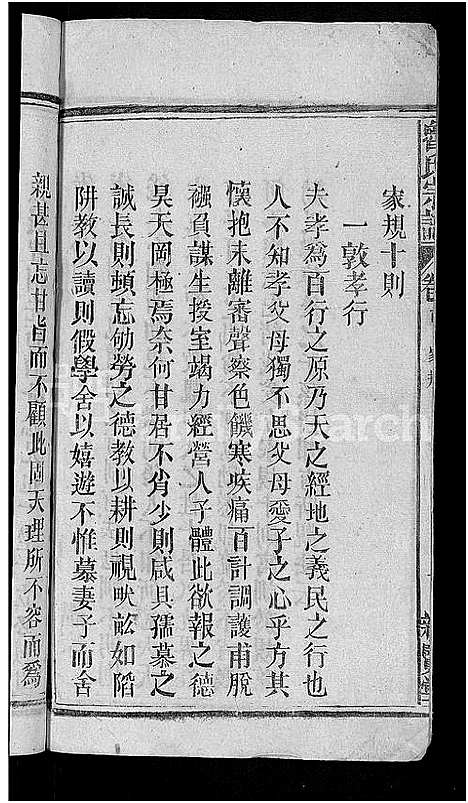 家規十則
一敦孝行
夫孝爲百行之原乃天之經地之義民之行也
人不知孝父母獨不思父母愛子之心乎方其
懷抱未離審聲察色饑寒疾痛百計調護甫脫
襁負謀生授室竭力經營人子體此欲報之德
昊天罔極焉奈何甘居不肖少則咸具孺慕之
誠長則頓忘劬勞之德教以耕則視畎畝如陷
阱教以讀則假學舍以嬉遊不惟慕妻子而舍
親甚且忘甘旨而不顧此固天理所不容而爲